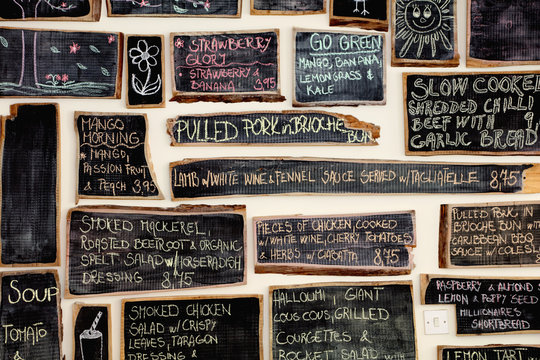 STRAWBERRY
GLORY
STRAWBERRY &
BANANA 3,95
GO GREEN
MANGO, BANANA,
LEMONGRASS &
KALE
SLOW COOKED
SHREDDED CHILLI
BEEF WITH
GARLIC BREAD
MANGO
MORNING
MANGO,
PASSION FRUIT
& PEACH 3,95
PULLED PORK in BRIOCHE
BUN
LAMB w/WHITE WINE & FENNEL SAUCE SERVED w/TAGLIATELLE 8,75
SMOKED MACKEREL,
ROASTED BEETROOT & ORGANIC
SPELT SALAD w/HORSERADISH
DRESSING 8,75
PIECES OF CHICKEN, COOKED
w/WHITE WINE, CHERRY TOMATOES
& HERBS w/CIABATTA 8,75
PULLED PORK IN
BRIOCHE BUN WITH
CARIBBEAN BBQ
SAUCE w/COLES
SOUP
TOMATO
SMOKED CHICKEN
SALAD w/CRISPY
LEAVES, TARAGON
DRESSING &
HALLOUMI, GIANT
COUS COUS, GRILLED
COURGETTES &
ROCKET SALAD
RASPBERRY & ALMOND S
LEMON & POPPY SEED
MILLIONAIRES
SHORTBREAD
LEMON TART